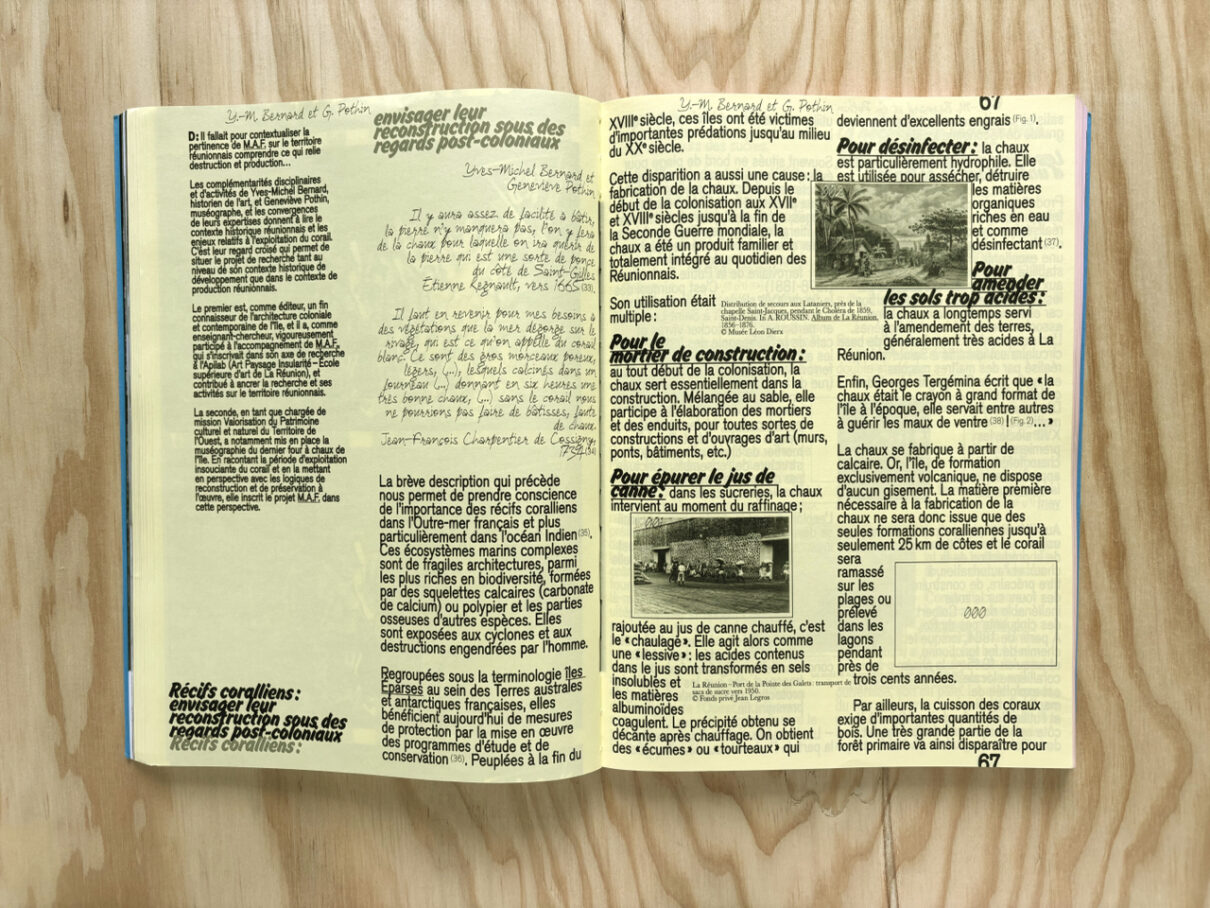 Y.-M. Bernard et G. Pothin
D: Il fallait pour contextualiser la
pertinence de M.A.F. sur le territoire
réunionnais comprendre ce qui relie
destruction et production…
Les complémentarités disciplinaires
et d'activités de Yves-Michel Bernard,
historien de l'art, et Geneviève Pothin,
muséographe, et les convergences
de leurs expertises donnent à lire le
contexte historique réunionnais et les
enjeux relatifs à l'exploitation du corail.
C'est leur regard croisé qui permet de
situer le projet de recherche tant au
niveau de son contexte historique de
développement que dans le contexte de
production réunionnais.
Le premier est, comme éditeur, un fin
connaisseur de l'architecture coloniale
et contemporaine de l'île, et il a, comme
enseignant-chercheur, vigoureusement
participé à l'accompagnement de M.A.F.
qui s'inscrivait dans son axe de recherche
à l'Apilab (Art Paysage Insularité – École
supérieure d'art de La Réunion), et
contribué à ancrer la recherche et ses
activités sur le territoire réunionnais.
La seconde, en tant que chargée de
mission Valorisation du Patrimoine
culturel et naturel du Territoire de
l'Ouest, a notamment mis en place la
muséographie du dernier four à chaux de
l'île. En racontant la période d'exploitation
insouciante du corail et en la mettant
en perspective avec les logiques de
reconstruction et de préservation à
l'œuvre, elle inscrit le projet M.A.F. dans
cette perspective.
Récifs coralliens :
envisager leur
reconstruction sous des
regards post-coloniaux
Récifs coralliens :
envisager leur
reconstruction sous des
regards post-coloniaux
Yves-Michel Bernard et
Geneviève Pothin
Il y aura assez de facilité à bâtir,
la pierre n'y manquera pas, l'on y fera
de la chaux pour laquelle on ira quérir de
la pierre qui est une sorte de ponce
du côté de Saint-Gilles
Étienne Regnault, vers 1665 (33).
Il faut en revenir pour mes besoins à
des végétations que la mer dégorge sur le
rivage, qui est ce qu'on appelle du corail
blanc. Ce sont des gros morceaux poreux,
légers, (…), lesquels calcinés dans un
fourneau (…) donnant en six heures une
très bonne chaux, (…) sans le corail nous
ne pourrions pas faire de bâtisses, faute
de chaux.
Jean-François Charpentier de Cossigny,
1794 (34)
La brève description qui précède
nous permet de prendre conscience
de l'importance des récifs coralliens
dans l'Outre-mer français et plus
particulièrement dans l'océan Indien (35).
Ces écosystèmes marins complexes
sont de fragiles architectures, parmi
les plus riches en biodiversité, formées
par des squelettes calcaires (carbonate
de calcium) ou polypier et les parties
osseuses d'autres espèces. Elles
sont exposées aux cyclones et aux
destructions engendrées par l'homme.
Regroupées sous la terminologie Îles
Éparses au sein des Terres australes
et antarctiques françaises, elles
bénéficient aujourd'hui de mesures
de protection par la mise en œuvre
des programmes d'étude et de
conservation (36). Peuplées à la fin du
Y.-M. Bernard et G. Pothin
67
XVIIIe siècle, ces îles ont été victimes
d'importantes prédations jusqu'au milieu
du XXe siècle.
Cette disparition a aussi une cause : la
fabrication de la chaux. Depuis le
début de la colonisation aux XVIIe
et XVIIIe siècles jusqu'à la fin de
la Seconde Guerre mondiale, la
chaux a été un produit familier et
totalement intégré au quotidien des
Réunionnais.
Son utilisation était
multiple :
Pour le
mortier de construction :
au tout début de la colonisation, la
chaux sert essentiellement dans la
construction. Mélangée au sable, elle
participe à l'élaboration des mortiers
et des enduits, pour toutes sortes de
constructions et d'ouvrages d'art (murs,
ponts, bâtiments, etc.)
Pour épurer le jus de
canne : dans les sucreries, la chaux
intervient au moment du raffinage ;
001
rajoutée au jus de canne chauffé, c'est
le « chaulage ». Elle agit alors comme
une « lessive » : les acides contenus
dans le jus sont transformés en sels
insolubles et
les matières
albuminoïdes
coagulent. Le précipité obtenu se
décante après chauffage. On obtient
des « écumes » ou « tourteaux » qui
La Réunion – Port de la Pointe des Galets : transport de
sacs de sucre vers 1950.
© Fonds privé Jean Legros
Distribution de secours aux Lataniers, près de la
chapelle Saint-Jacques, pendant le Choléra de 1859,
Saint-Denis. In A. ROUSSIN. Album de La Réunion,
1856–1876.
© Musée Léon Dierx
deviennent d'excellents engrais (Fig. 1).
Pour désinfecter : la chaux
est particulièrement hydrophile. Elle
est utilisée pour assécher, détruire
les matières
organiques
riches en eau
et comme
désinfectant (37).
Pour
amender
les sols trop acides :
la chaux a longtemps servi
à l'amendement des terres,
généralement très acides à La
Réunion.
Enfin, Georges Tergémina écrit que « la
chaux était le crayon à grand format de
l'île à l'époque, elle servait entre autres
à guérir les maux de ventre (38) ! (Fig. 2)… »
La chaux se fabrique à partir de
calcaire. Or, l'île, de formation
exclusivement volcanique, ne dispose
d'aucun gisement. La matière première
nécessaire à la fabrication de la
chaux ne sera donc issue que des
seules formations coralliennes jusqu'à
seulement 25 km de côtes et le corail
sera
ramassé
sur les
plages ou
prélevé
dans les
lagons
pendant
près de
trois cents années.
000
Par ailleurs, la cuisson des coraux
exige d'importantes quantités de
bois. Une très grande partie de la
forêt primaire va ainsi disparaître pour
67